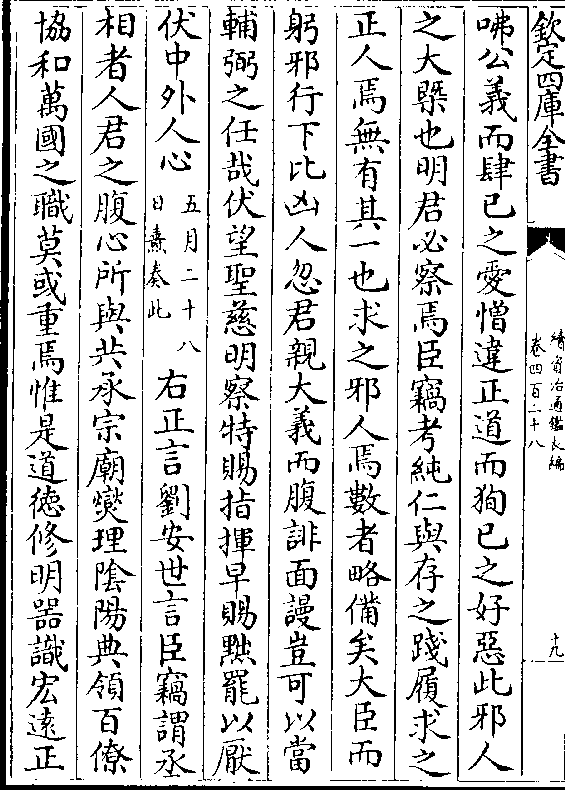 欽定四庫全書
續資治通鑑長編
卷四百二十八
十九
咈公義而肆已之愛憎違正道而狥已之好惡此邪人
之大槩也明君必察焉臣竊考純仁與存之踐履求之
正人焉無有其一也求之邪人焉數者略備矣大臣而
躬邪行下比凶人忽君親大義而腹誹面謾豈可以當
輔弼之任哉伏望聖慈明察特賜指揮早賜黜罷以厭
伏中外人心
五月二十八
日燾奏此
右正言劉安世言臣竊謂丞
相者人君之腹心所與共承宗廟爕理隂陽典領百僚
協和萬國之職莫或重焉惟是道徳修明器識宏逺正